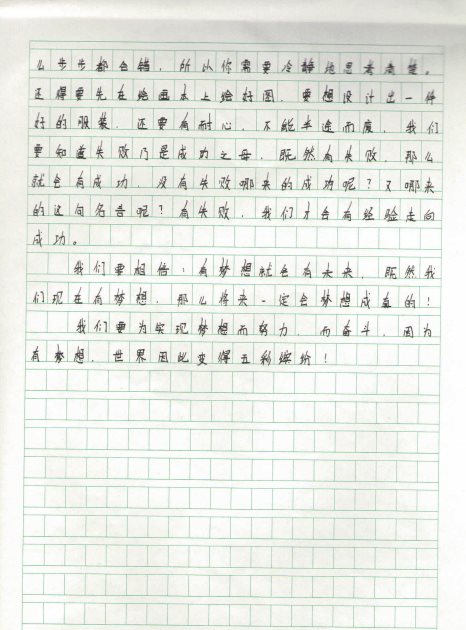 么步步都会错，所以你需要冷静地思考清楚。
还得要先在绘画本上绘好图，要想设计出一件
好的服装，还要有耐心，不能半途而废，我们
要知道失败乃是成功之母，既然有失败，那么
就会有成功，没有失败哪来的成功呢？又哪来
的这句名言呢？有失败，我们才会有经验走向
成功。
我们要相信：有梦想就会有未来，既然我
们现在有梦想，那么将来一定会梦想成真的！
我们要为实现梦想而努力，而奋斗，因为
有梦想，世界因此变得五彩缤纷！